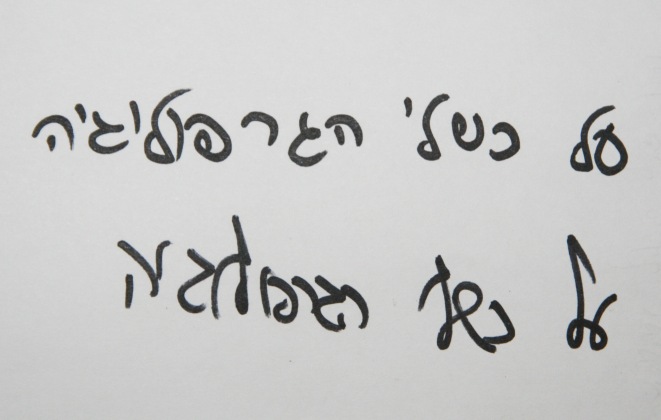 על כשלי הגרפוליגיה
על כשלי הגרפולוגיה